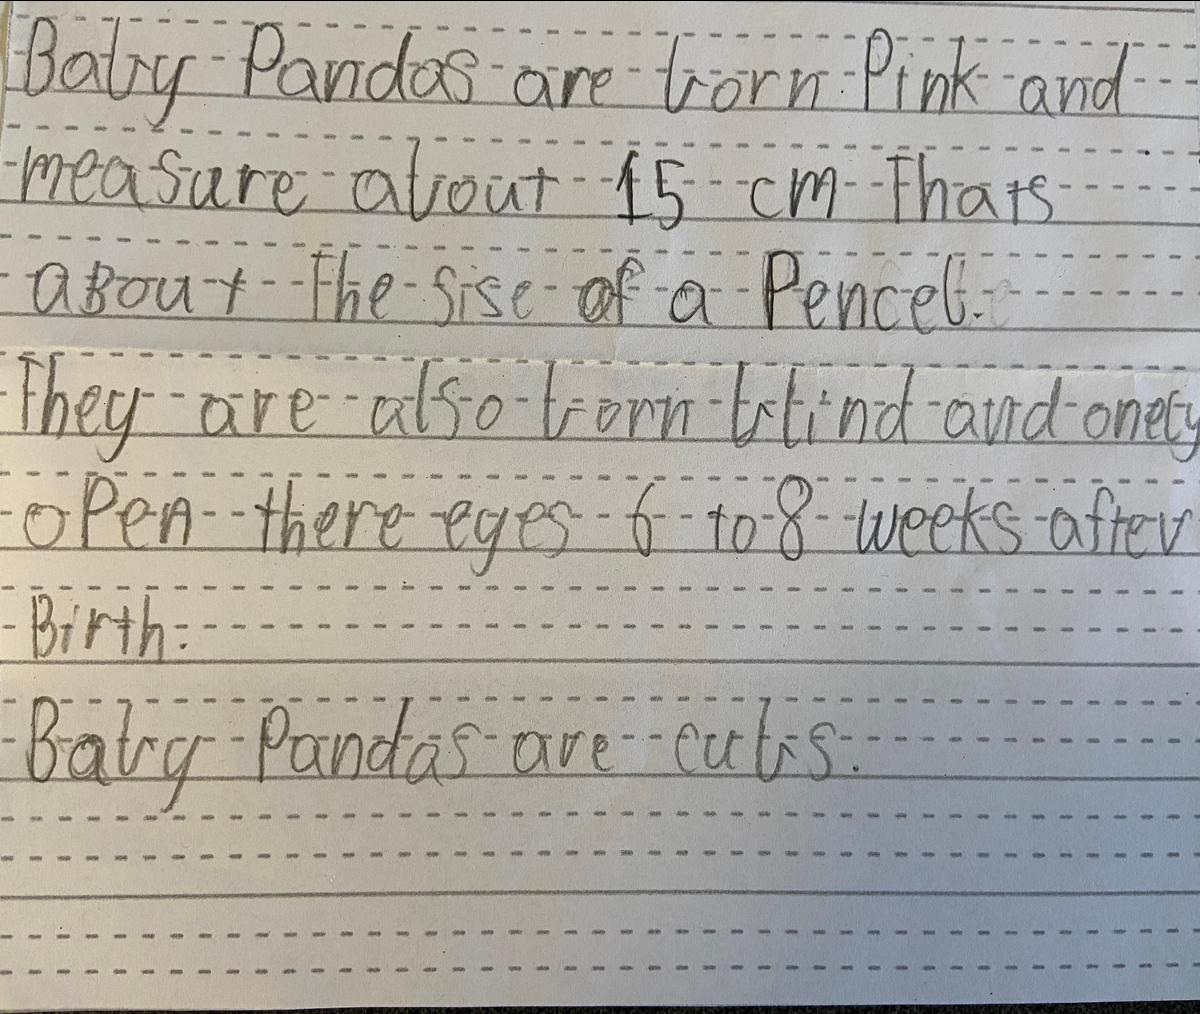 Baby Pandas are born Pink and
measure about 15 cm Thats
aBout The sise of a Pencel.
They are also born blind and onely
oPen there eyes 6 to 8 weeks after
Birth.
Baby Pandas are cubs.